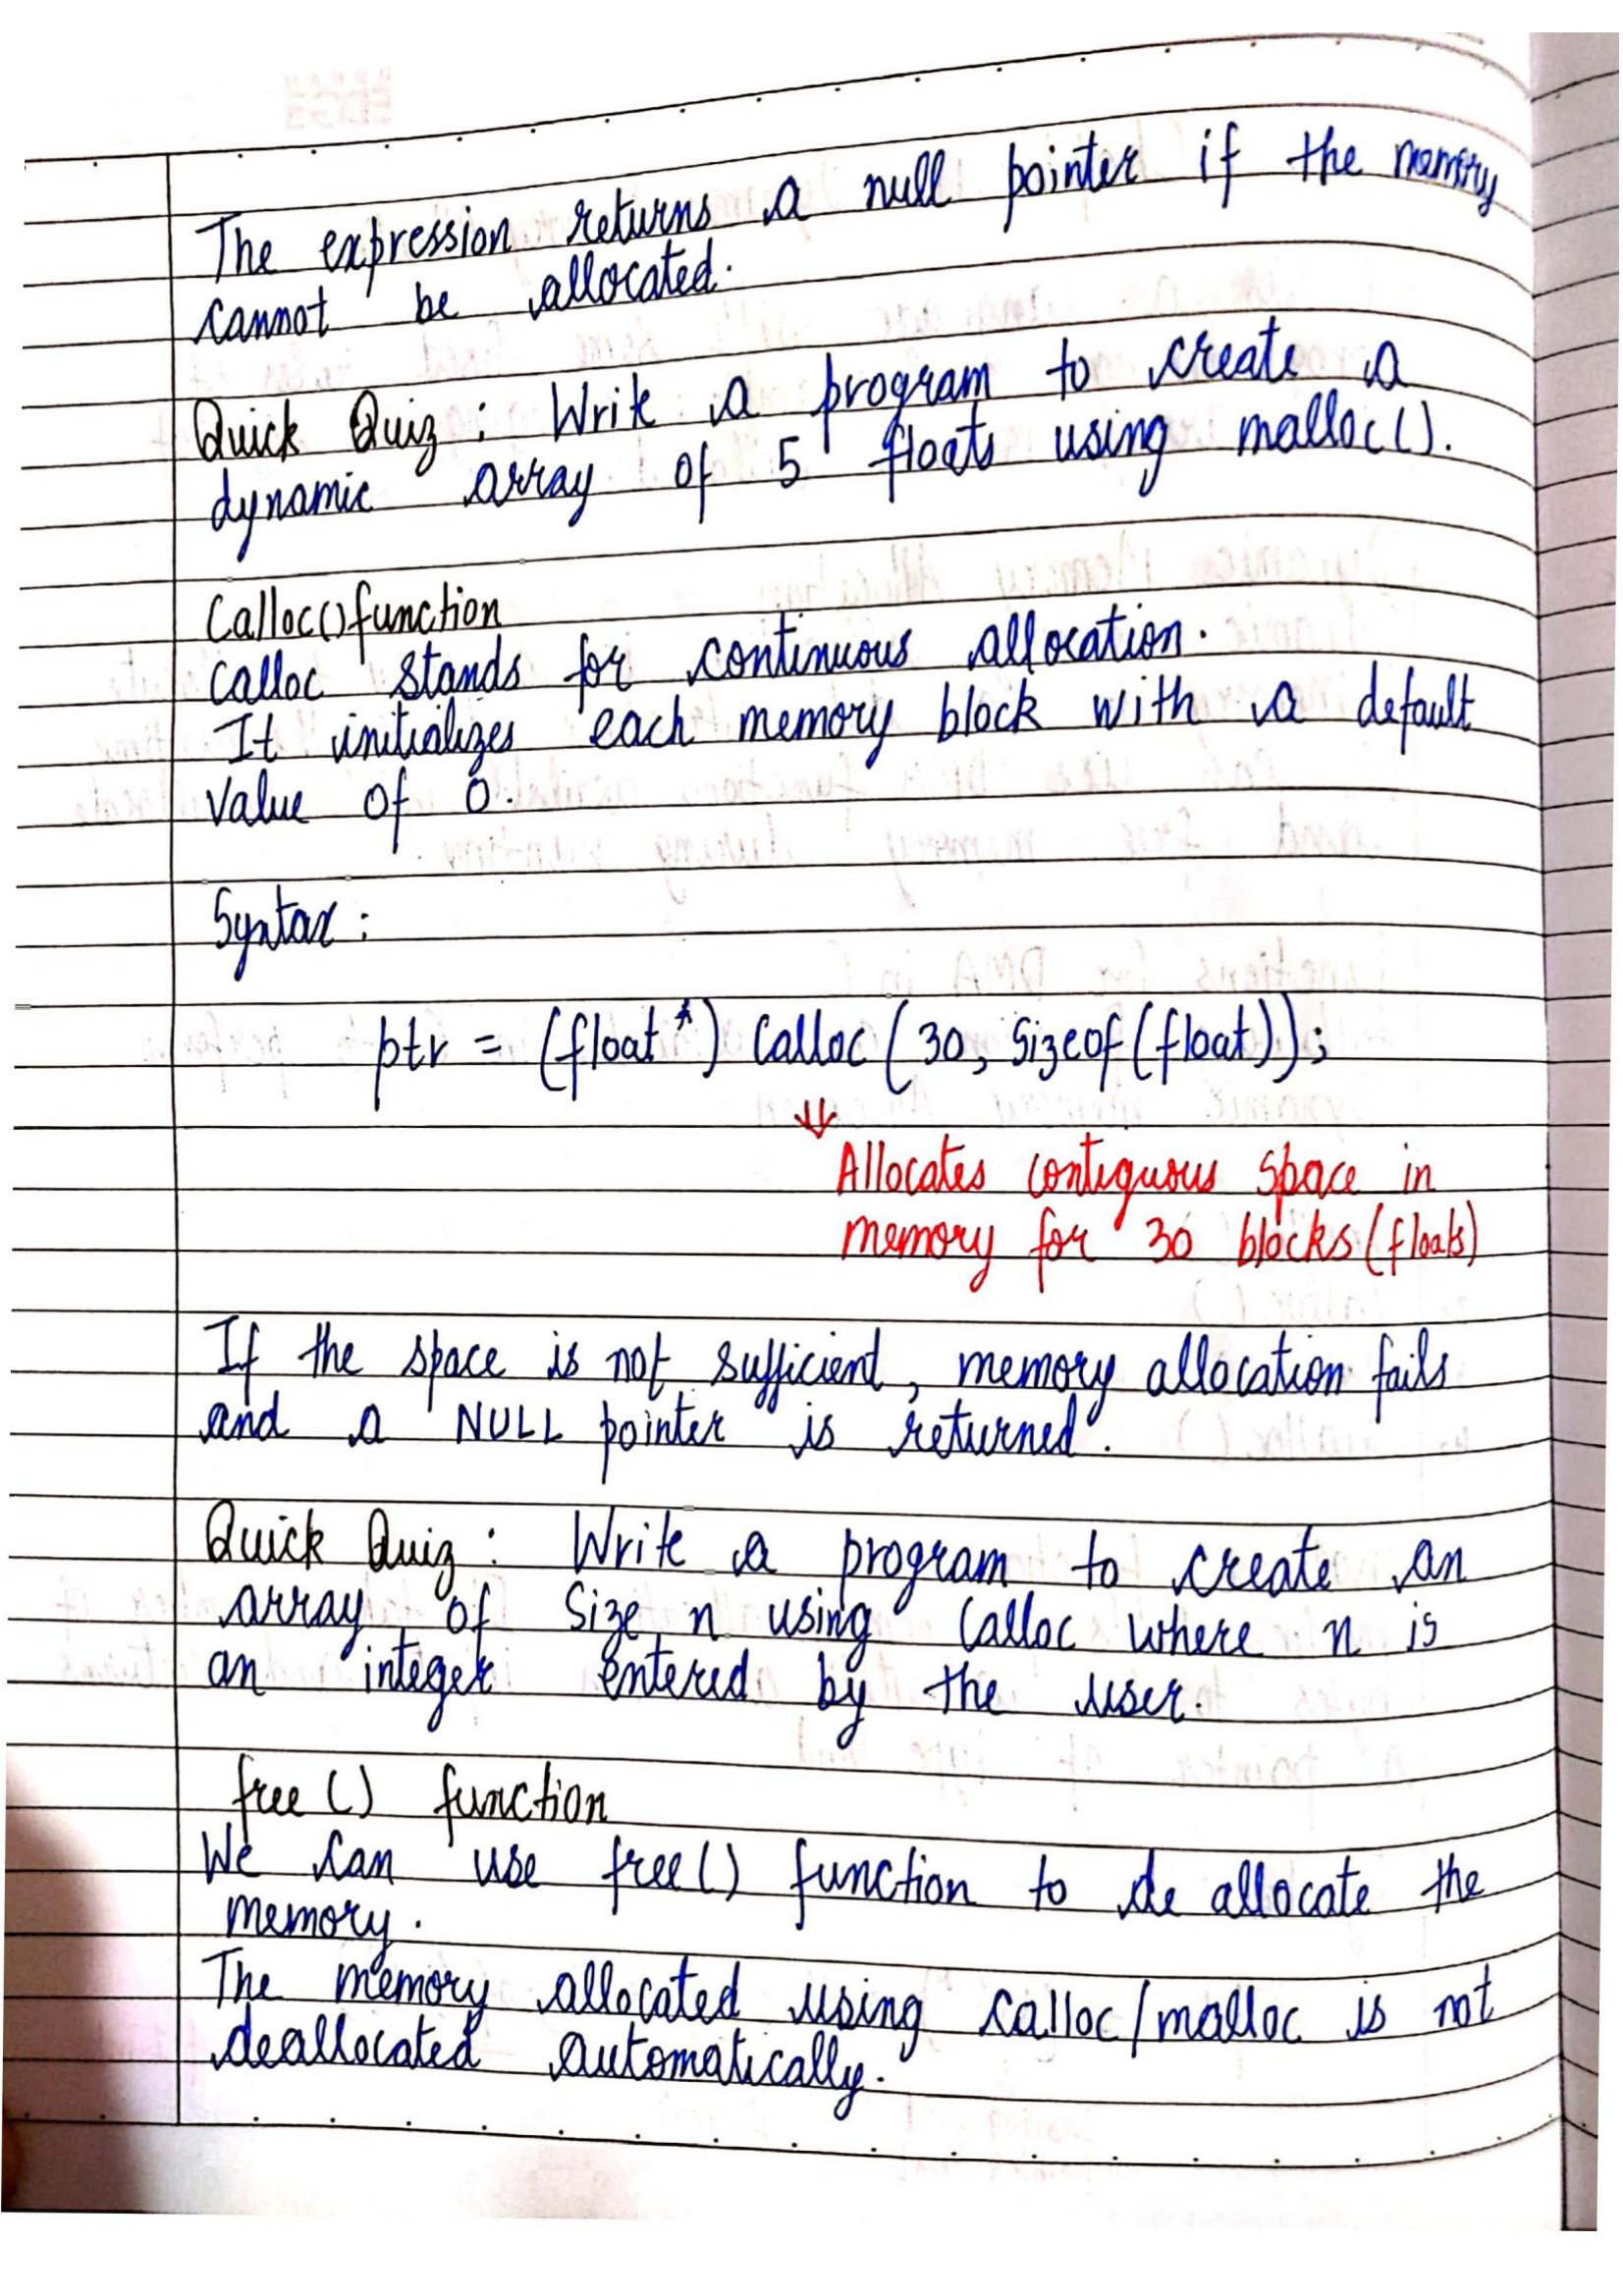 The expression returns a null pointer if the memory
cannot be allocated.
Quick Quiz : Write a program to create a
dynamic array of 5 floats using malloc().
Calloc() function
Calloc stands for continuous allocation.
It initializes each memory block with a default
value of 0.
Syntax :
ptr = (float*) Calloc (30, Sizeof (float));
Allocates contiguous space in
memory for 30 blocks (floats)
If the space is not sufficient, memory allocation fails
and a NULL pointer is returned.
Quick Quiz : Write a program to create an
array of Size n using Calloc where n is
an integer entered by the user.
free () function
We can use free() function to de allocate the
memory.
The memory allocated using calloc/malloc is not
deallocated automatically.